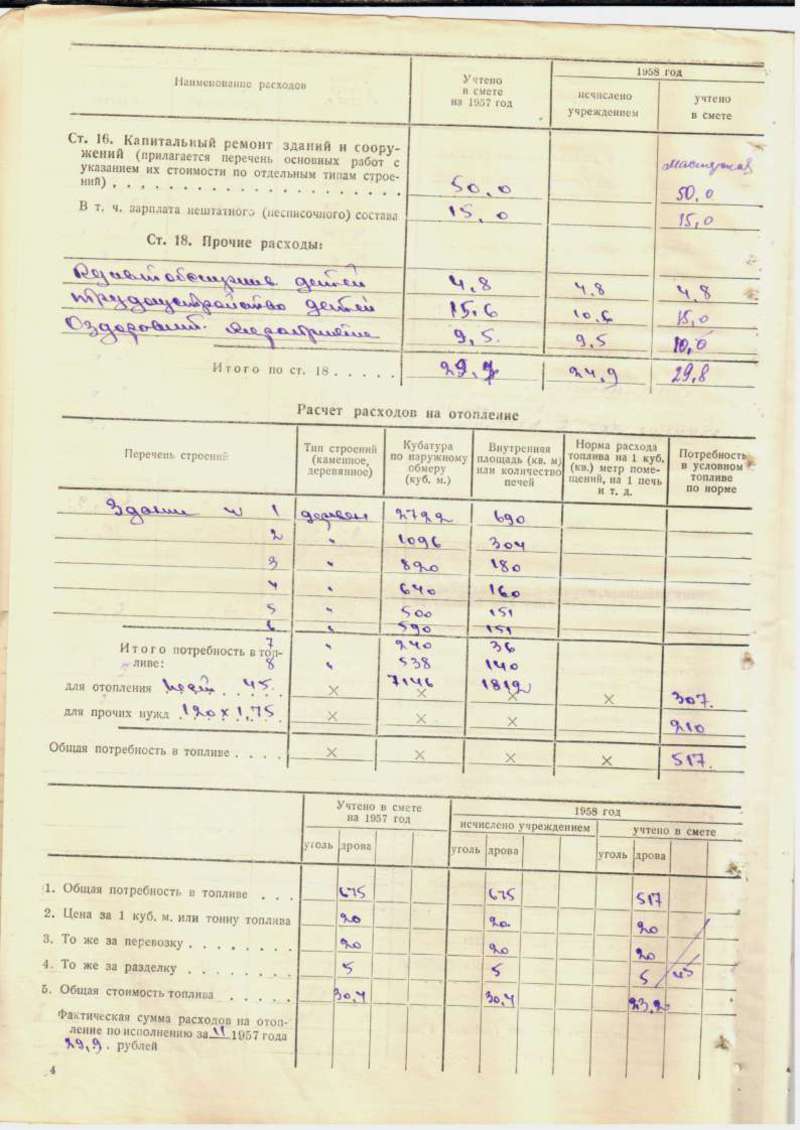 Наименование расходов | Учтено в смете на 1957 год | 1958 год
исчислено учреждением | учтено в смете
Ст. 16. Капитальный ремонт зданий и соору-
жений (прилагается перечень основных работ с
указанием их стоимости по отдельным типам строе-
ний) . . . 50,0 | 50,0
В т. ч. зарплата нештатного (несписочного) состава 15,0 | 15,0
Ст. 18. Прочие расходы:
детей 4,8 | 4,8 | 4,8
Трудоустройство детей 15,6 | 10,6 | 15,0
Оздоровит. мероприятие 9,5 | 9,5 | 10,0
Итого по ст. 18 . . . . . 29,9 | 24,9 | 29,8
Расчет расходов на отопление
Перечень строений | Тип строений (каменное, деревянное) | Кубатура по наружному обмеру (куб. м.) | Внутренняя площадь (кв. м) или количество печей | Норма расхода топлива на 1 куб. (кв.) метр поме-щений, на 1 печь и т. д. | Потребность в условном топливе по норме
Здание № 1 | деревян | 2722 | 690
2 | " | 1096 | 304
3 | " | 820 | 180
4 | " | 640 | 160
5 | " | 500 | 151
6 | " | 590 | 151
Итого потребность в топ- 7 | " | 240 | 36
ливе: 8 | " | 538 | 140
7146 | 1812
для отопления печей 45 . × × × × 307.
для прочих нужд 120 х 1,75 × × × 210
Общая потребность в топливе . . . . × × × × 517.
Учтено в смете на 1957 год | 1958 год
исчислено учреждением | учтено в смете
уголь | дрова | уголь | дрова | уголь | дрова
1. Общая потребность в топливе . . . 675 | 675 | 517
2. Цена за 1 куб. м. или тонну топлива 20 | 20. | 20
3. То же за перевозку . . . . . . . . 20 | 20 | 20
4. То же за разделку . . . . . . . . 5 | 5 | 5 / 45
5. Общая стоимость топлива . . . . . 30,4 | 30,4 | 23,20
Фактическая сумма расходов на отоп-
ление по исполнению за 11 1957 года
29,9. рублей
4